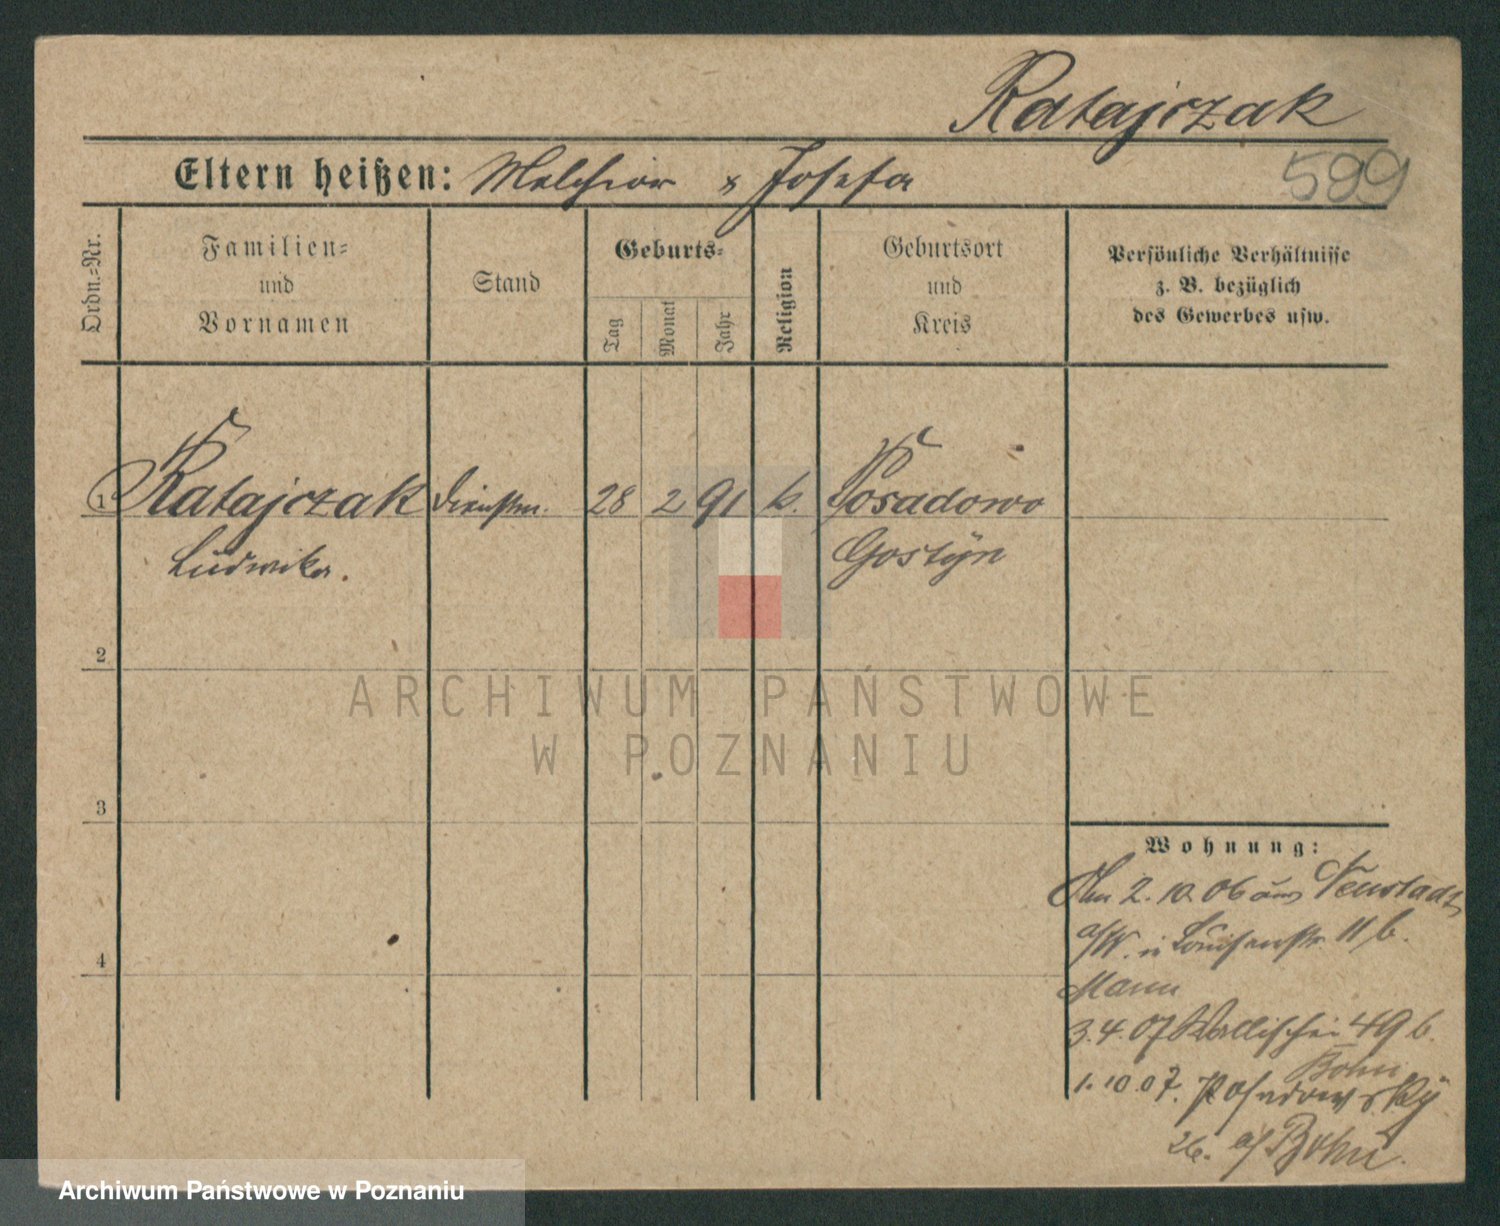 Ratajczak
599
Eltern heißen: Melchior & Josefa
Ordn.=Nr.
Familien=
und
Vornamen
Stand
Geburts=
Tag
Monat
Jahr
Religion
Geburtsort
und
Kreis
Persönliche Verhältnisse
z. B. bezüglich
des Gewerbes usw.
1 Ratajczak Dienstm. 28 2 91 k. Posadowo
Ludwika. Gostÿn
2
3
4
ARCHIWUM PAŃSTWOWE
W POZNANIU
Wohnung:
2. 10. 06 aus Neustadt
a/W. in Louisenstr 11 b.
Mann
3. 4. 07 Wallischei 49 b.
Bohn
1. 10. 07. Posadowskÿ
26. Bohn.
Archiwum Państwowe w Poznaniu